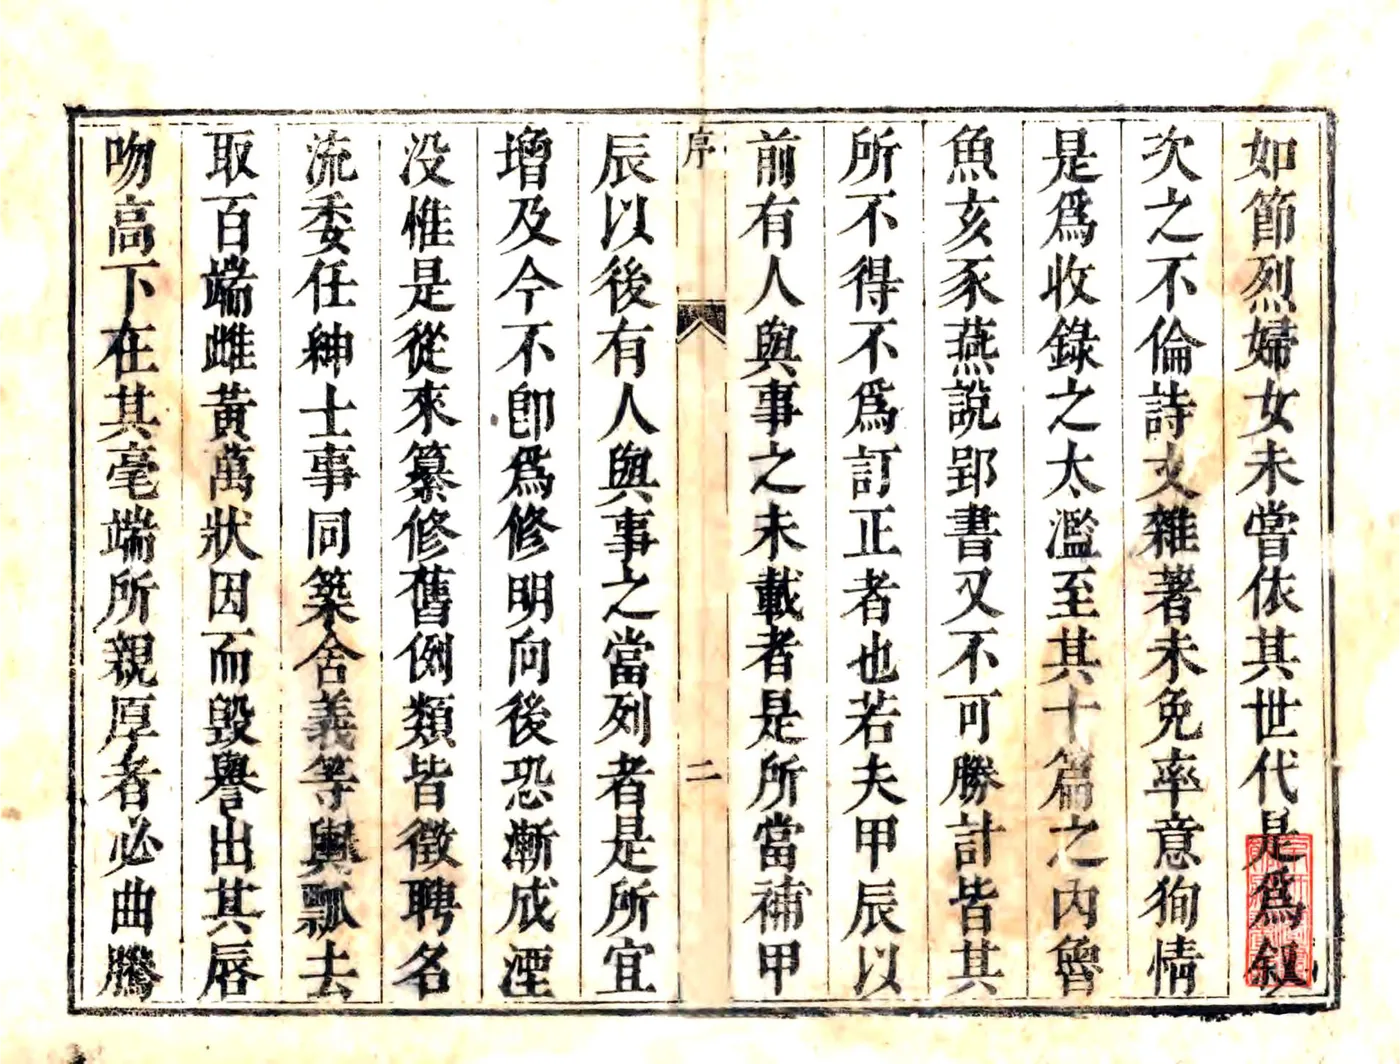 如節烈婦女未嘗依其世代是爲敘
次之不倫詩文雜著未免率意狥情
是爲收錄之太濫至其十篇之內魯
魚亥豕燕說郢書又不可勝計皆其
所不得不爲訂正者也若夫甲辰以
前有人與事之未載者是所當補甲
序
二
辰以後有人與事之當列者是所宜
增及今不卽爲修明向後恐漸成湮
没惟是從來纂修舊例類皆徵聘名
流委任紳士事同築舍義等輿瓢去
取百端雌黃萬狀因而毀譽出其唇
吻高下在其毫端所親厚者必曲騰